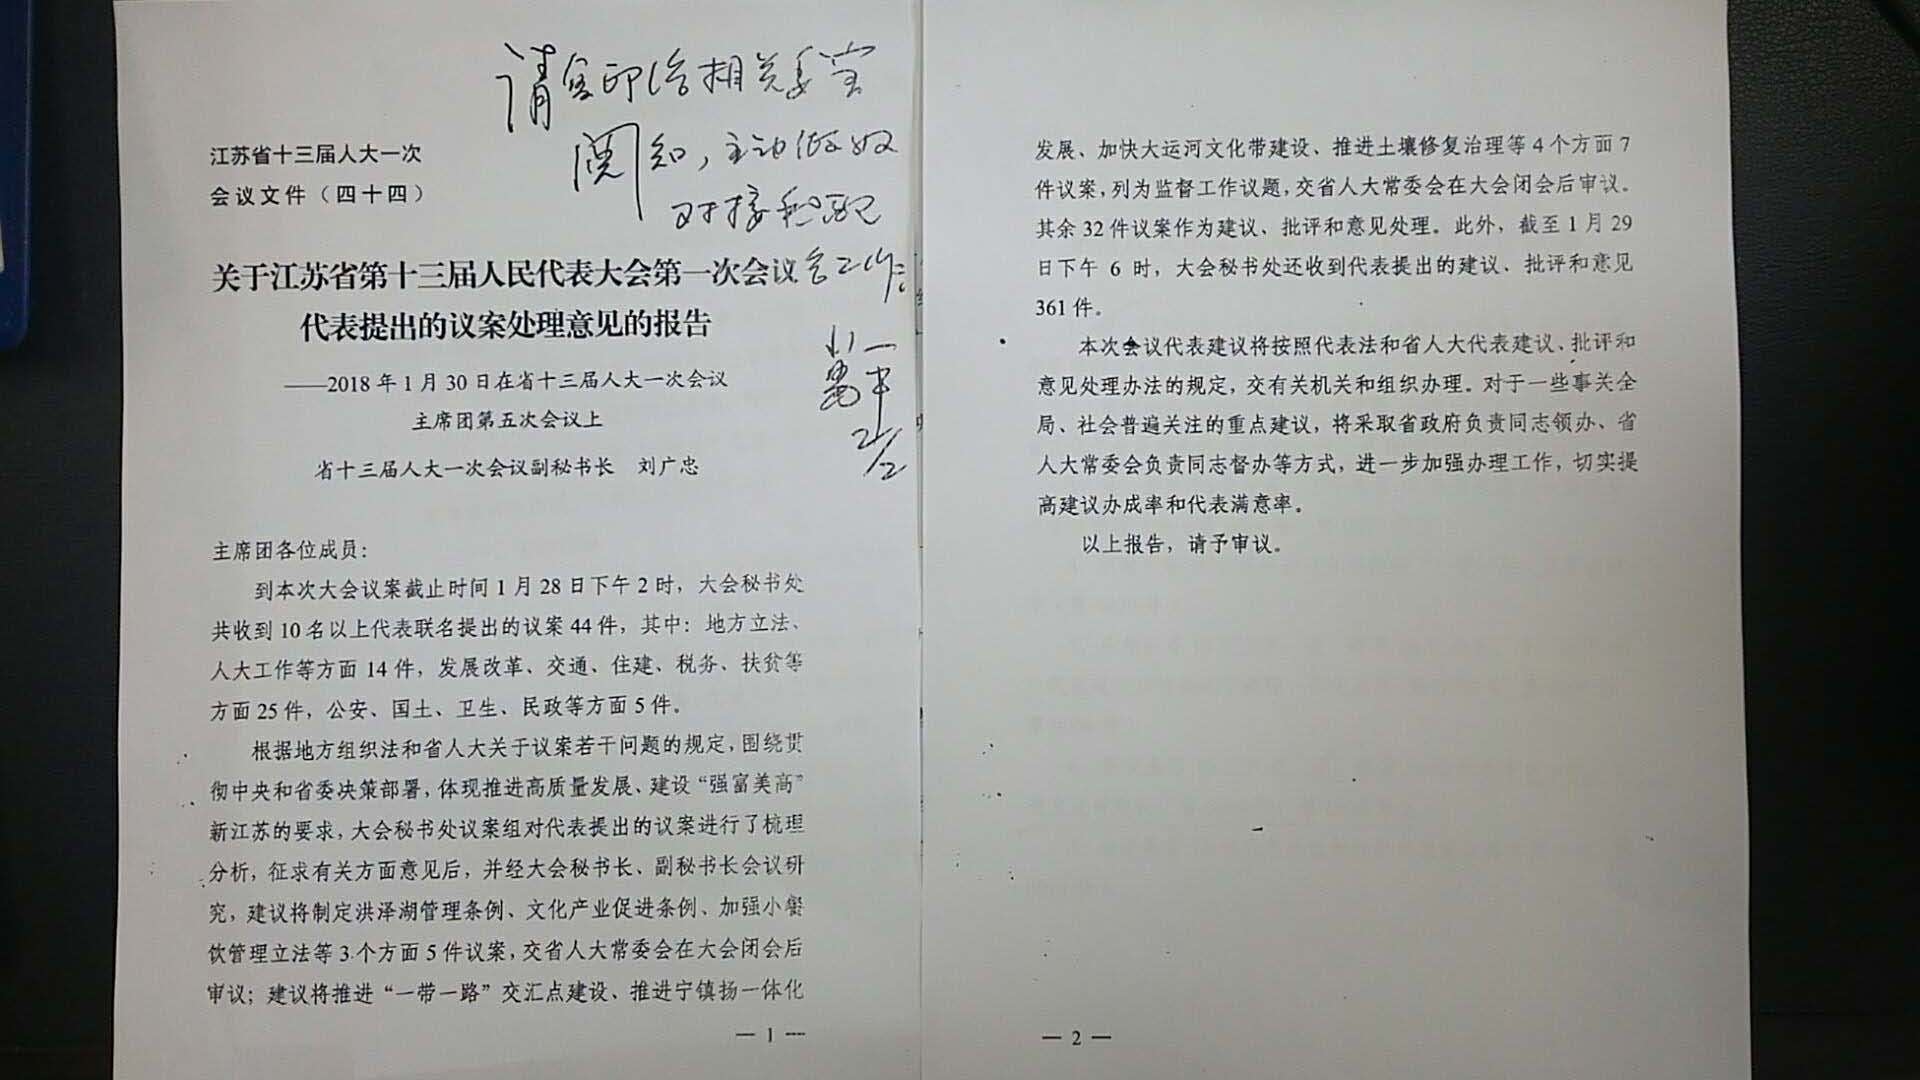 请复印给相关委室
阅知，主动做好
对接和配
合工作。
江苏省十三届人大一次
会议文件（四十四）
关于江苏省第十三届人民代表大会第一次会议
代表提出的议案处理意见的报告
——2018 年 1 月 30 日在省十三届人大一次会议
主席团第五次会议上
省十三届人大一次会议副秘书长 刘广忠
2/2
主席团各位成员：
到本次大会议案截止时间 1 月 28 日下午 2 时，大会秘书处
共收到 10 名以上代表联名提出的议案 44 件，其中：地方立法、
人大工作等方面 14 件，发展改革、交通、住建、税务、扶贫等
方面 25 件，公安、国土、卫生、民政等方面 5 件。
根据地方组织法和省人大关于议案若干问题的规定，围绕贯
彻中央和省委决策部署，体现推进高质量发展、建设“强富美高”
新江苏的要求，大会秘书处议案组对代表提出的议案进行了梳理
分析，征求有关方面意见后，并经大会秘书长、副秘书长会议研
究，建议将制定洪泽湖管理条例、文化产业促进条例、加强小餐
饮管理立法等 3 个方面 5 件议案，交省人大常委会在大会闭会后
审议；建议将推进“一带一路”交汇点建设、推进宁镇扬一体化
— 1 —
发展、加快大运河文化带建设、推进土壤修复治理等 4 个方面 7
件议案，列为监督工作议题，交省人大常委会在大会闭会后审议。
其余 32 件议案作为建议、批评和意见处理。此外，截至 1 月 29
日下午 6 时，大会秘书处还收到代表提出的建议、批评和意见
361 件。
本次会议代表建议将按照代表法和省人大代表建议、批评和
意见处理办法的规定，交有关机关和组织办理。对于一些事关全
局、社会普遍关注的重点建议，将采取省政府负责同志领办、省
人大常委会负责同志督办等方式，进一步加强办理工作，切实提
高建议办成率和代表满意率。
以上报告，请予审议。
— 2 —